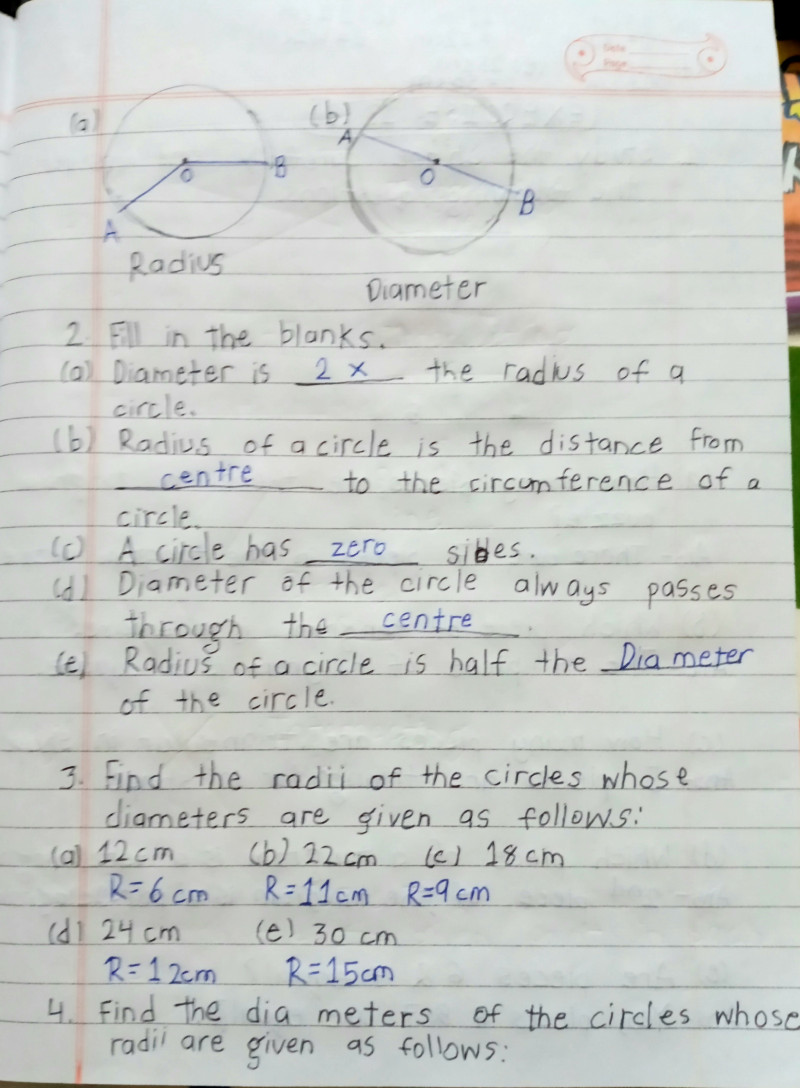 Date
Page
(a) (b)
A
O B O
A B
Radius
Diameter
2. Fill in the blanks.
(a) Diameter is 2 x the radius of a
circle.
(b) Radius of a circle is the distance from
centre to the circumference of a
circle.
(c) A circle has zero sides.
(d) Diameter of the circle always passes
through the centre.
(e) Radius of a circle is half the Diameter
of the circle.
3. Find the radii of the circles whose
diameters are given as follows:
(a) 12 cm (b) 22 cm (c) 18 cm
R=6 cm R=11 cm R=9 cm
(d) 24 cm (e) 30 cm
R=12cm R=15cm
4. Find the dia meters of the circles whose
radii are given as follows: